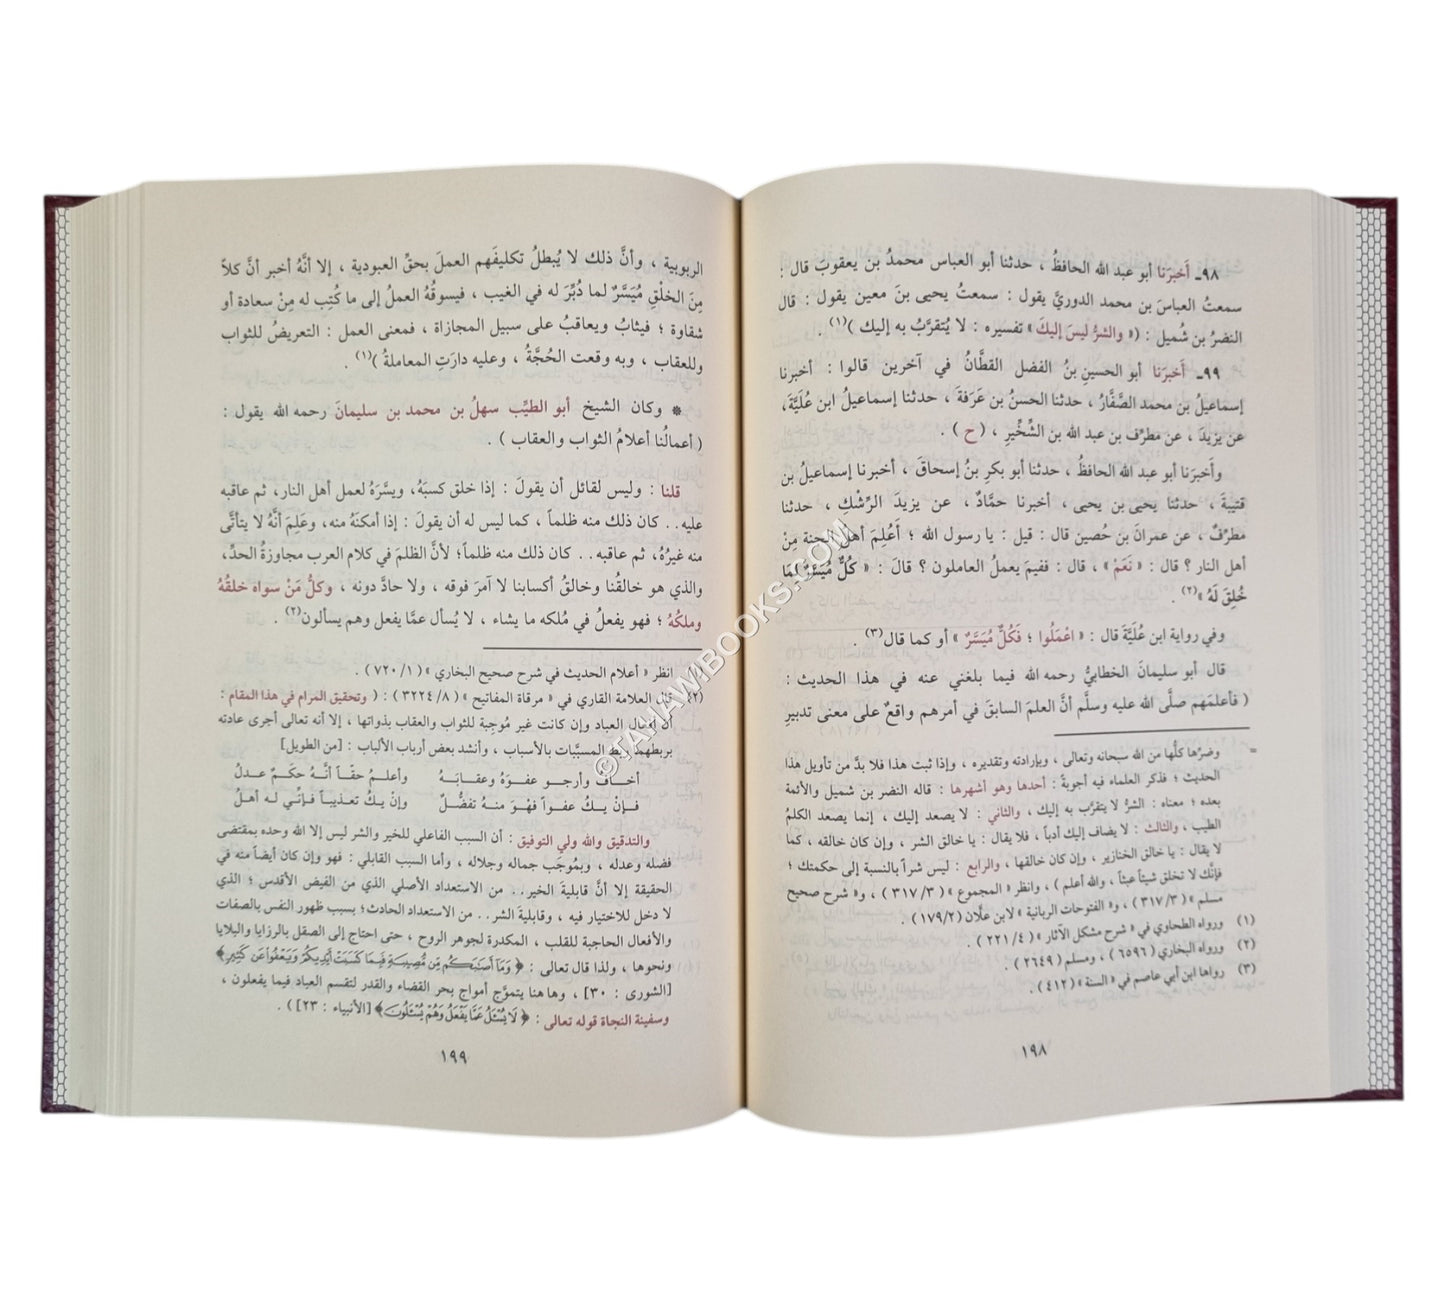 ٩٨ـ أَخبرَنا أبو عبد الله الحافظُ ، حدثنا أبو العباس محمدُ بن يعقوبَ قال :
سمعتُ العباسَ بن محمد الدوريَّ يقول : سمعتُ يحيى بنَ معين يقول : قال
النضرُ بن شُميل : (« والشرُّ ليسَ إليكَ » تفسيره : لا يُتقرَّبُ به إليك )(١) .
٩٩ـ أَخبرَنا أبو الحسينِ بنُ الفضل القطَّانُ في آخرين قالوا : أخبرنا
إسماعيلُ بن محمد الصَّفَّارُ ، حدثنا الحسنُ بن عَرَفةَ ، حدثنا إسماعيلُ ابن عُلَيَّةَ ،
عن يزيدَ ، عن مطرِّف بن عبد الله بن الشِّخِّيرِ ، ( ح ) .
وأَخبرَنا أبو عبد الله الحافظُ ، حدثنا أبو بكرِ بنُ إسحاقَ ، أخبرنا إسماعيلُ بن
قتيبةَ ، حدثنا يحيى بن يحيى ، أخبرنا حمَّادٌ ، عن يزيدَ الرِّشْكِ ، حدثنا
مطرِّفٌ ، عن عمرانَ بن حُصين قال : قيل : يا رسول الله ؛ أَعُلِمَ أهلُ الجنة مِنْ
أهل النار ؟ قال : « نَعَمْ » ، قال : ففيمَ يعملُ العاملون ؟ قالَ : « كُلٌّ مُيَسَّرٌ لِمَا
خُلِقَ لَهُ »(٢) .
وفي رواية ابن عُلَيَّةَ قال : « اعْمَلُوا ؛ فَكُلٌّ مُيَسَّرٌ » أو كما قال(٣) .
قال أبو سليمانَ الخطابيُّ رحمه الله فيما بلغني عنه في هذا الحديث :
( فأعلمَهم صلَّى الله عليه وسلَّم أنَّ العلمَ السابقَ في أمرهم واقعٌ على معنى تدبيرِ
= وضرّها كلّها من الله سبحانه وتعالى ، وبإرادته وتقديره ، وإذا ثبت هذا فلا بدَّ من تأويل هذا
الحديث ؛ فذكر العلماء فيه أجوبةً : أحدها وهو أشهرها : قاله النضر بن شميل والأئمة
بعده ؛ معناه : الشرُّ لا يتقرَّب به إليك ، والثاني : لا يصعد إليك ، إنما يصعد الكلمُ
الطيب ، والثالث : لا يضاف إليك أدباً ، فلا يقال : يا خالق الشر ، وإن كان خالقه ، كما
لا يقال : يا خالق الخنازير ، وإن كان خالقها ، والرابع : ليس شراً بالنسبة إلى حكمتك ؛
فإنَّك لا تخلق شيئاً عبثاً ، والله أعلم ) ، وانظر « المجموع » ( ٣١٧/٣ ) ، و« شرح صحيح
مسلم » ( ٣١٧/٣ ) ، و« الفتوحات الربانية » لابن علّان ( ١٧٩/٢ ) .
(١) ورواه الطحاوي في « شرح مشكل الآثار » ( ٢٢١/٤ ) .
(٢) ورواه البخاري ( ٦٥٩٦ ) ، ومسلم ( ٢٦٤٩ ) .
(٣) رواها ابن أبي عاصم في « السنة » ( ٤١٢ ) .
١٩٨
الربوبية ، وأنَّ ذلك لا يُبطلُ تكليفَهم العملَ بحقِّ العبودية ، إلا أنَّهُ أخبر أنَّ كلاًّ
مِنَ الخلْقِ مُيَسَّرٌ لما دُبِّرَ له في الغيب ، فيسوقُهُ العملُ إلى ما كُتِب له مِنْ سعادة أو
شقاوة ؛ فيثابُ ويعاقبُ على سبيل المجازاة ، فمعنى العمل : التعريضُ للثواب
وللعقاب ، وبه وقعت الحُجَّةُ ، وعليه دارَتِ المعاملةُ )(١) .
* وكان الشيخ أبو الطيِّب سهلُ بن محمد بن سليمانَ رحمه الله يقول :
( أعمالُنا أعلامُ الثواب والعقاب ) .
قلنا : وليس لقائل أن يقولَ : إذا خلق كسبَهُ، ويسَّرَهُ لعمل أهل النار، ثم عاقبه
عليه . . كان ذلك منه ظلماً ، كما ليس له أن يقولَ : إذا أمكنَهُ منه، وعَلِمَ أنَّهُ لا يتأتَّى
منه غيرُهُ، ثم عاقبه . . كان ذلك منه ظلماً؛ لأنَّ الظلمَ في كلام العرب مجاوزةُ الحدِّ،
والذي هو خالقُنا وخالقُ أكسابنا لا آمرَ فوقه ، ولا حادَّ دونه ، وكلُّ مَنْ سواه خلقُهُ
وملكُهُ ؛ فهو يفعلُ في مُلكه ما يشاء ، لا يُسأل عمَّا يفعل وهم يسألون(٢) .
(١) انظر « أعلام الحديث في شرح صحيح البخاري » ( ٧٢٠/١ ) .
(٢) قال العلامة القاري في « مرقاة المفاتيح » ( ٣٢٢٤/٨ ) : ( وتحقيق المرام في هذا المقام :
أن أفعال العباد وإن كانت غير مُوجِبة للثواب والعقاب بذواتها ، إلا أنه تعالى أجرى عادته
بربطهما ربط المسبَّبات بالأسباب ، وأنشد بعض أرباب الألباب : [من الطويل]
أخـاف وأرجـو عفـوَهُ وعقـابَـهُ وأعلـمُ حقّـاً أنَّـهُ حكَـمٌ عـدلُ
فـإنْ يـكُ عفـواً فهْـوَ منـهُ تفضُّـلٌ وإنْ يـكُ تعـذيبـاً فـإنِّـي لـه أهـلُ
والتدقيق والله ولي التوفيق : أن السبب الفاعلي للخير والشر ليس إلا الله وحده بمقتضى
فضله وعدله ، وبمُوجَب جماله وجلاله ، وأما السبب القابلي : فهو وإن كان أيضاً منه في
الحقيقة إلا أنَّ قابليةَ الخير . . من الاستعداد الأصلي الذي من الفيض الأقدس ؛ الذي
لا دخل للاختيار فيه ، وقابليةَ الشر . . من الاستعداد الحادث؛ بسبب ظهور النفس بالصفات
والأفعال الحاجبة للقلب ، المكدرة لجوهر الروح ، حتى احتاج إلى الصقل بالرزايا والبلايا
ونحوها ، ولذا قال تعالى : ﴿ وَمَآ أَصَٰبَكُم مِّن مُّصِيبَةٍ فَبِمَا كَسَبَتْ أَيْدِيكُمْ وَيَعْفُوا۟ عَن كَثِيرٍ ﴾
[الشورى : ٣٠] ، وها هنا يتموَّج أمواج بحر القضاء والقدر لتقسم العباد فيما يفعلون ،
وسفينة النجاة قوله تعالى : ﴿ لَا يُسْـَٔلُ عَمَّا يَفْعَلُ وَهُمْ يُسْـَٔلُونَ ﴾ [الأنبياء : ٢٣] ) .
١٩٩
© TAHAWIBOOKS.COM